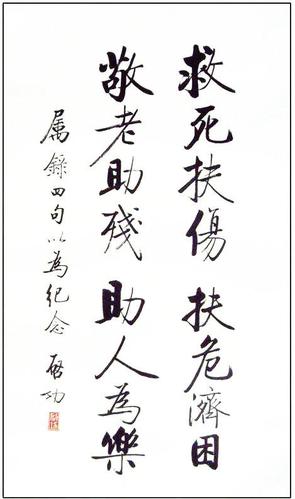 救死扶傷 扶危濟困
敬老助殘 助人為樂
属錄四句以為纪念 啓功